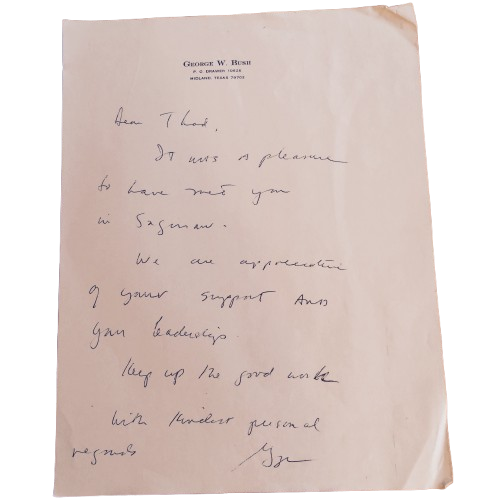 GEORGE W. BUSH
P. O. DRAWER 10626
MIDLAND, TEXAS 79702
Dear Thad,
It was a pleasure
to have met you
in Saginaw.
We are appreciative
of your support and
your leadership.
Keep up the good work
With kindest personal
regards